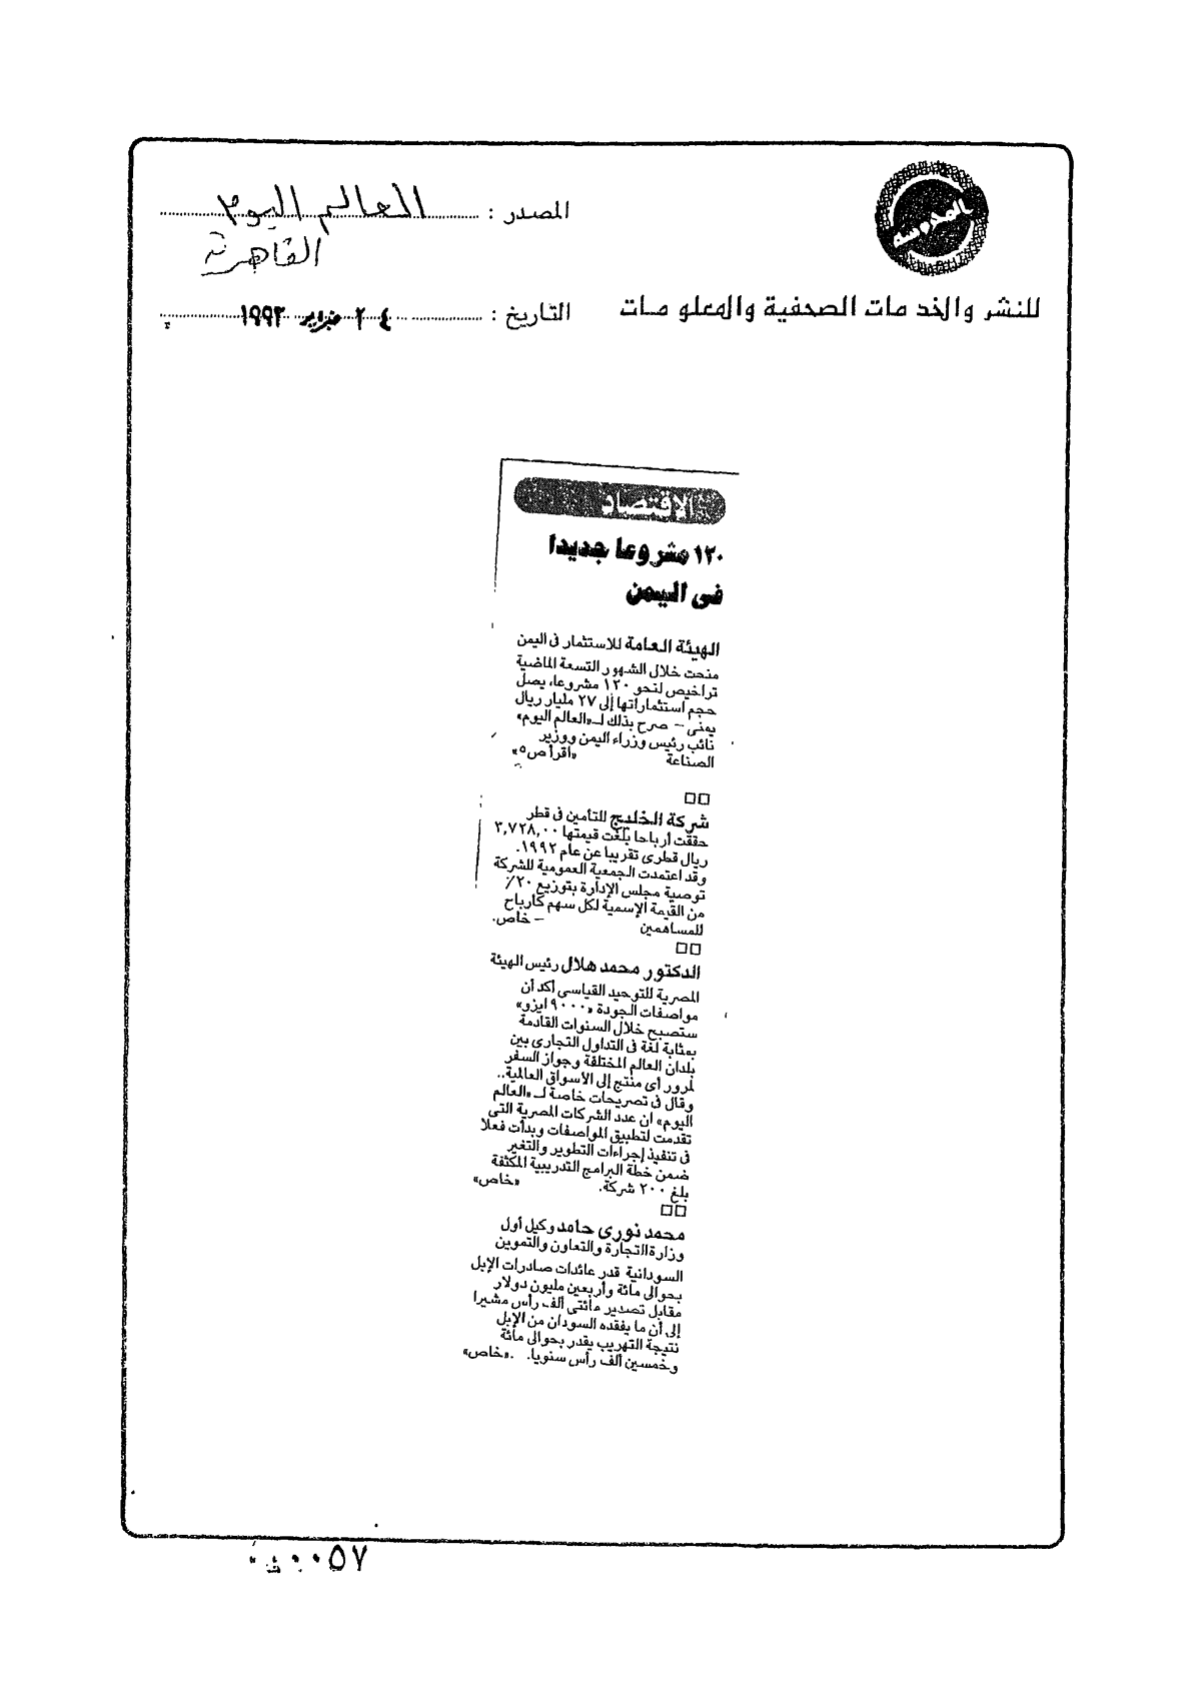 المحروسة
المصدر : العالم اليوم
القاهرة
للنشر والخدمات الصحفية والمعلومات
التاريخ : ٢٤ فبراير ١٩٩٣
الاقتصاد
١٢٠ مشروعا جديدا
فى اليمن
الهيئة العامة للاستثمار فى اليمن
منحت خلال الشهور التسعة الماضية
تراخيص لنحو ١٢٠ مشروعا، يصل
حجم استثماراتها إلى ٢٧ مليار ريال
يمنى – صرح بذلك لـ«العالم اليوم»
نائب رئيس وزراء اليمن ووزير
الصناعة «اقرأ ص٥»
□□
شركة الخليج للتأمين فى قطر
حققت أرباحا بلغت قيمتها ٣,٧٢٨,٠٠
ريال قطرى تقريبا عن عام ١٩٩٢.
وقد اعتمدت الجمعية العمومية للشركة
توصية مجلس الإدارة بتوزيع ٢٠٪
من القيمة الإسمية لكل سهم كأرباح
للمساهمين – خاص.
□□
الدكتور محمد هلال رئيس الهيئة
المصرية للتوحيد القياسى أكد أن
مواصفات الجودة «٩٠٠٠ ايزو»
ستصبح خلال السنوات القادمة
بمثابة لغة فى التداول التجارى بين
بلدان العالم المختلفة وجواز السفر
لمرور أى منتج إلى الأسواق العالمية..
وقال فى تصريحات خاصة لـ «العالم
اليوم» ان عدد الشركات المصرية التى
تقدمت لتطبيق المواصفات وبدأت فعلا
فى تنفيذ إجراءات التطوير والتغير
ضمن خطة البرامج التدريبية المكثفة
بلغ ٢٠٠ شركة. «خاص»
□□
محمد نورى حامد وكيل أول
وزارة التجارة والتعاون والتموين
السودانية قدر عائدات صادرات الإبل
بحوالى مائة وأربعين مليون دولار
مقابل تصدير مائتى ألف رأس مشيرا
إلى أن ما يفقده السودان من الإبل
نتيجة التهريب يقدر بحوالى مائة
وخمسين ألف رأس سنويا. «خاص»